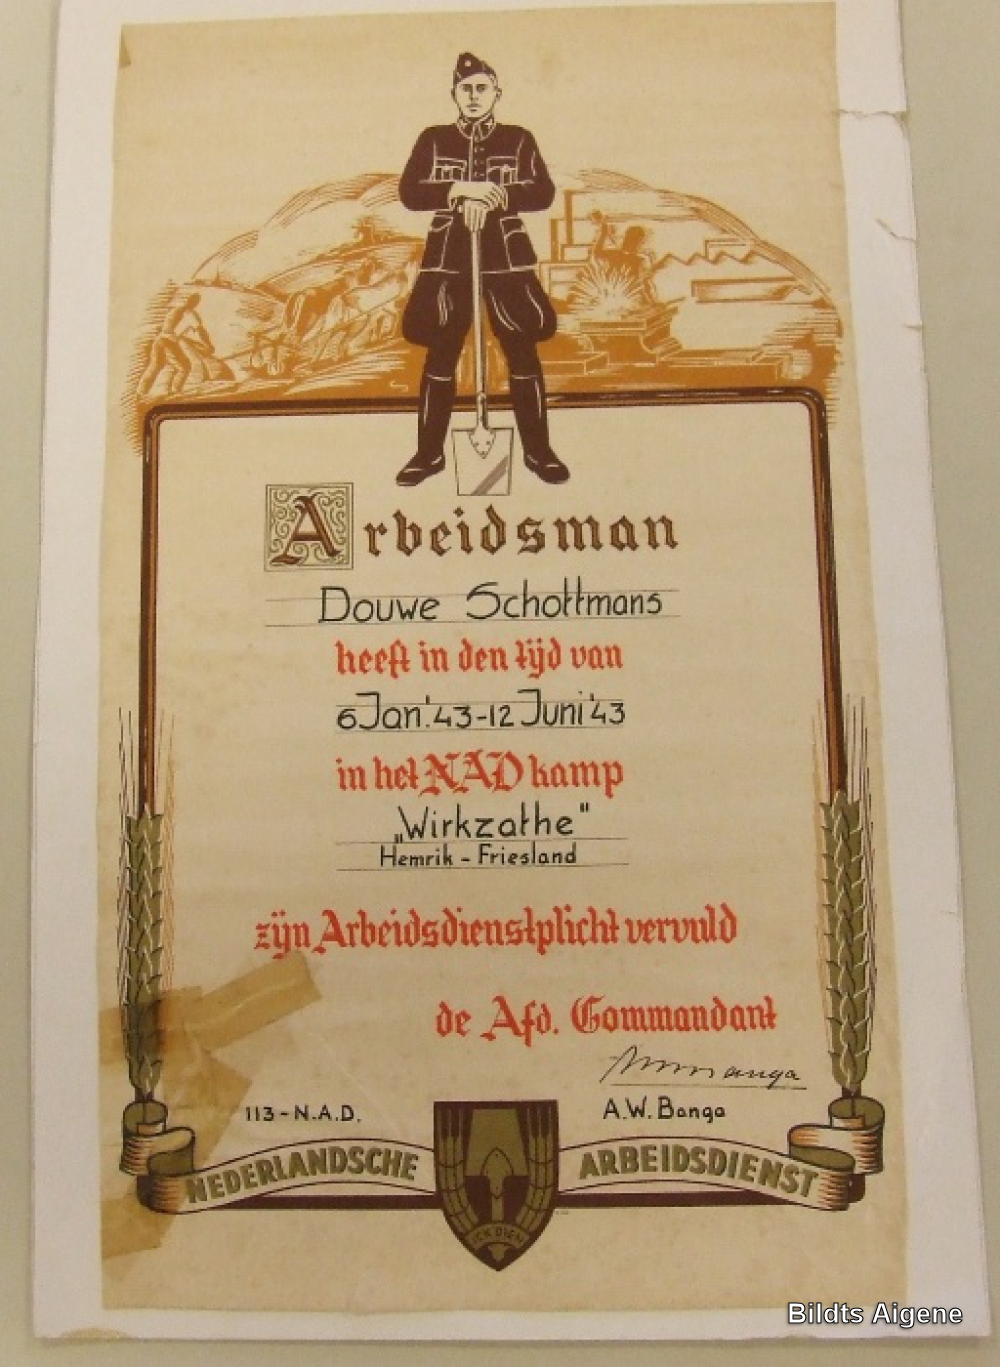 Arbeidsman
Douwe Schottmans
heeft in den tijd van
6 Jan.'43-12 Juni '43
in het NAD kamp
„Wirkzathe"
Hemrik - Friesland
zijn Arbeidsdienstplicht vervuld
de Afd. Commandant
113-N.A.D.
A.W. Banga
NEDERLANDSCHE ARBEIDSDIENST
ICK DIEN
Bildts Aigene